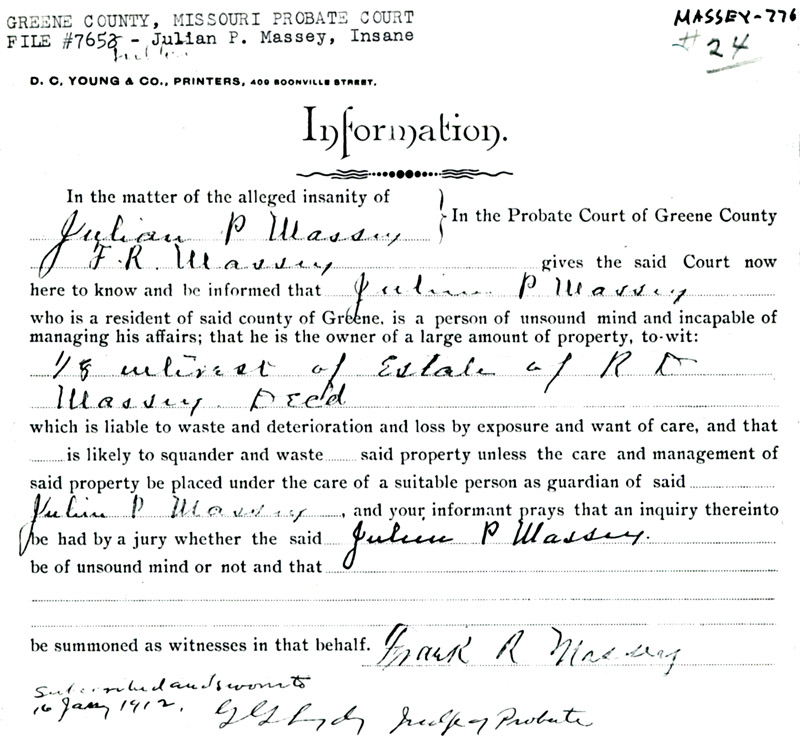 GREENE COUNTY, MISSOURI PROBATE COURT
FILE #7653 - Julian P. Massey, Insane
MASSEY-776
#24
D. C. YOUNG & CO., PRINTERS, 409 BOONVILLE STREET.
Information.
In the matter of the alleged insanity of
Julian P Massey
In the Probate Court of Greene County
F. R. Massey gives the said Court now
here to know and be informed that Julian P Massey
who is a resident of said county of Greene, is a person of unsound mind and incapable of
managing his affairs; that he is the owner of a large amount of property, to-wit:
1/8 interest of Estate of R D
Massey Dec'd
which is liable to waste and deterioration and loss by exposure and want of care, and that
is likely to squander and waste said property unless the care and management of
said property be placed under the care of a suitable person as guardian of said
Julian P Massey, and your informant prays that an inquiry thereinto
be had by a jury whether the said Julian P Massey.
be of unsound mind or not and that
be summoned as witnesses in that behalf. Frank R Massey
Subscribed and sworn to
16 Jany 1912. Judge of Probate